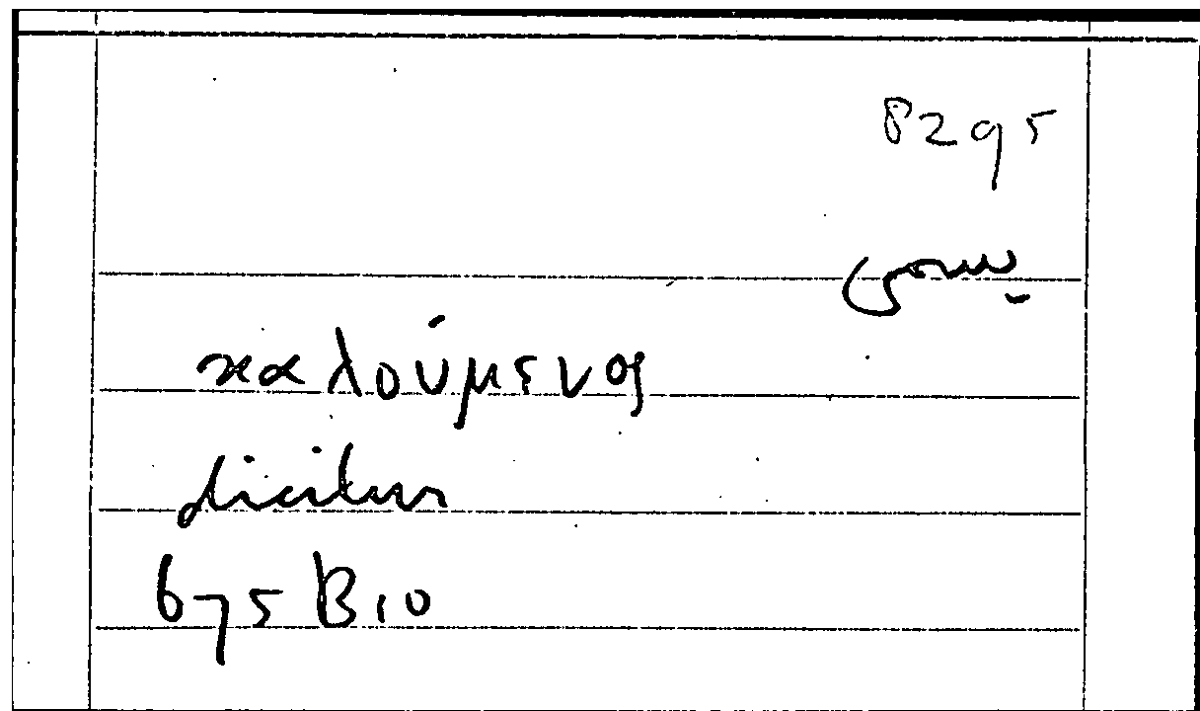 8295
καλούμενος
dicitur
675 B 10